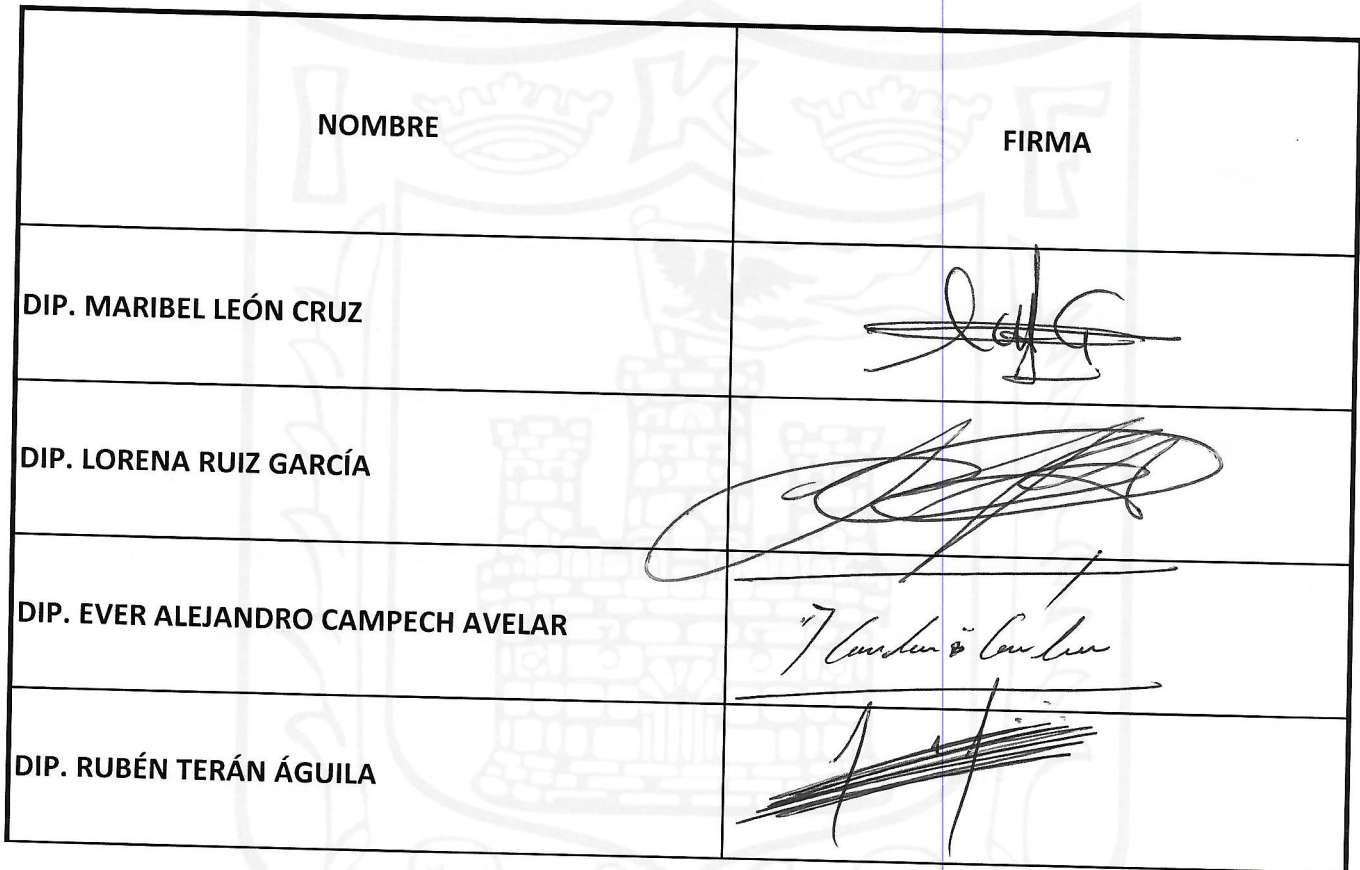 NOMBRE FIRMA
DIP. MARIBEL LEÓN CRUZ
DIP. LORENA RUIZ GARCÍA
DIP. EVER ALEJANDRO CAMPECH AVELAR
DIP. RUBÉN TERÁN ÁGUILA
I K F